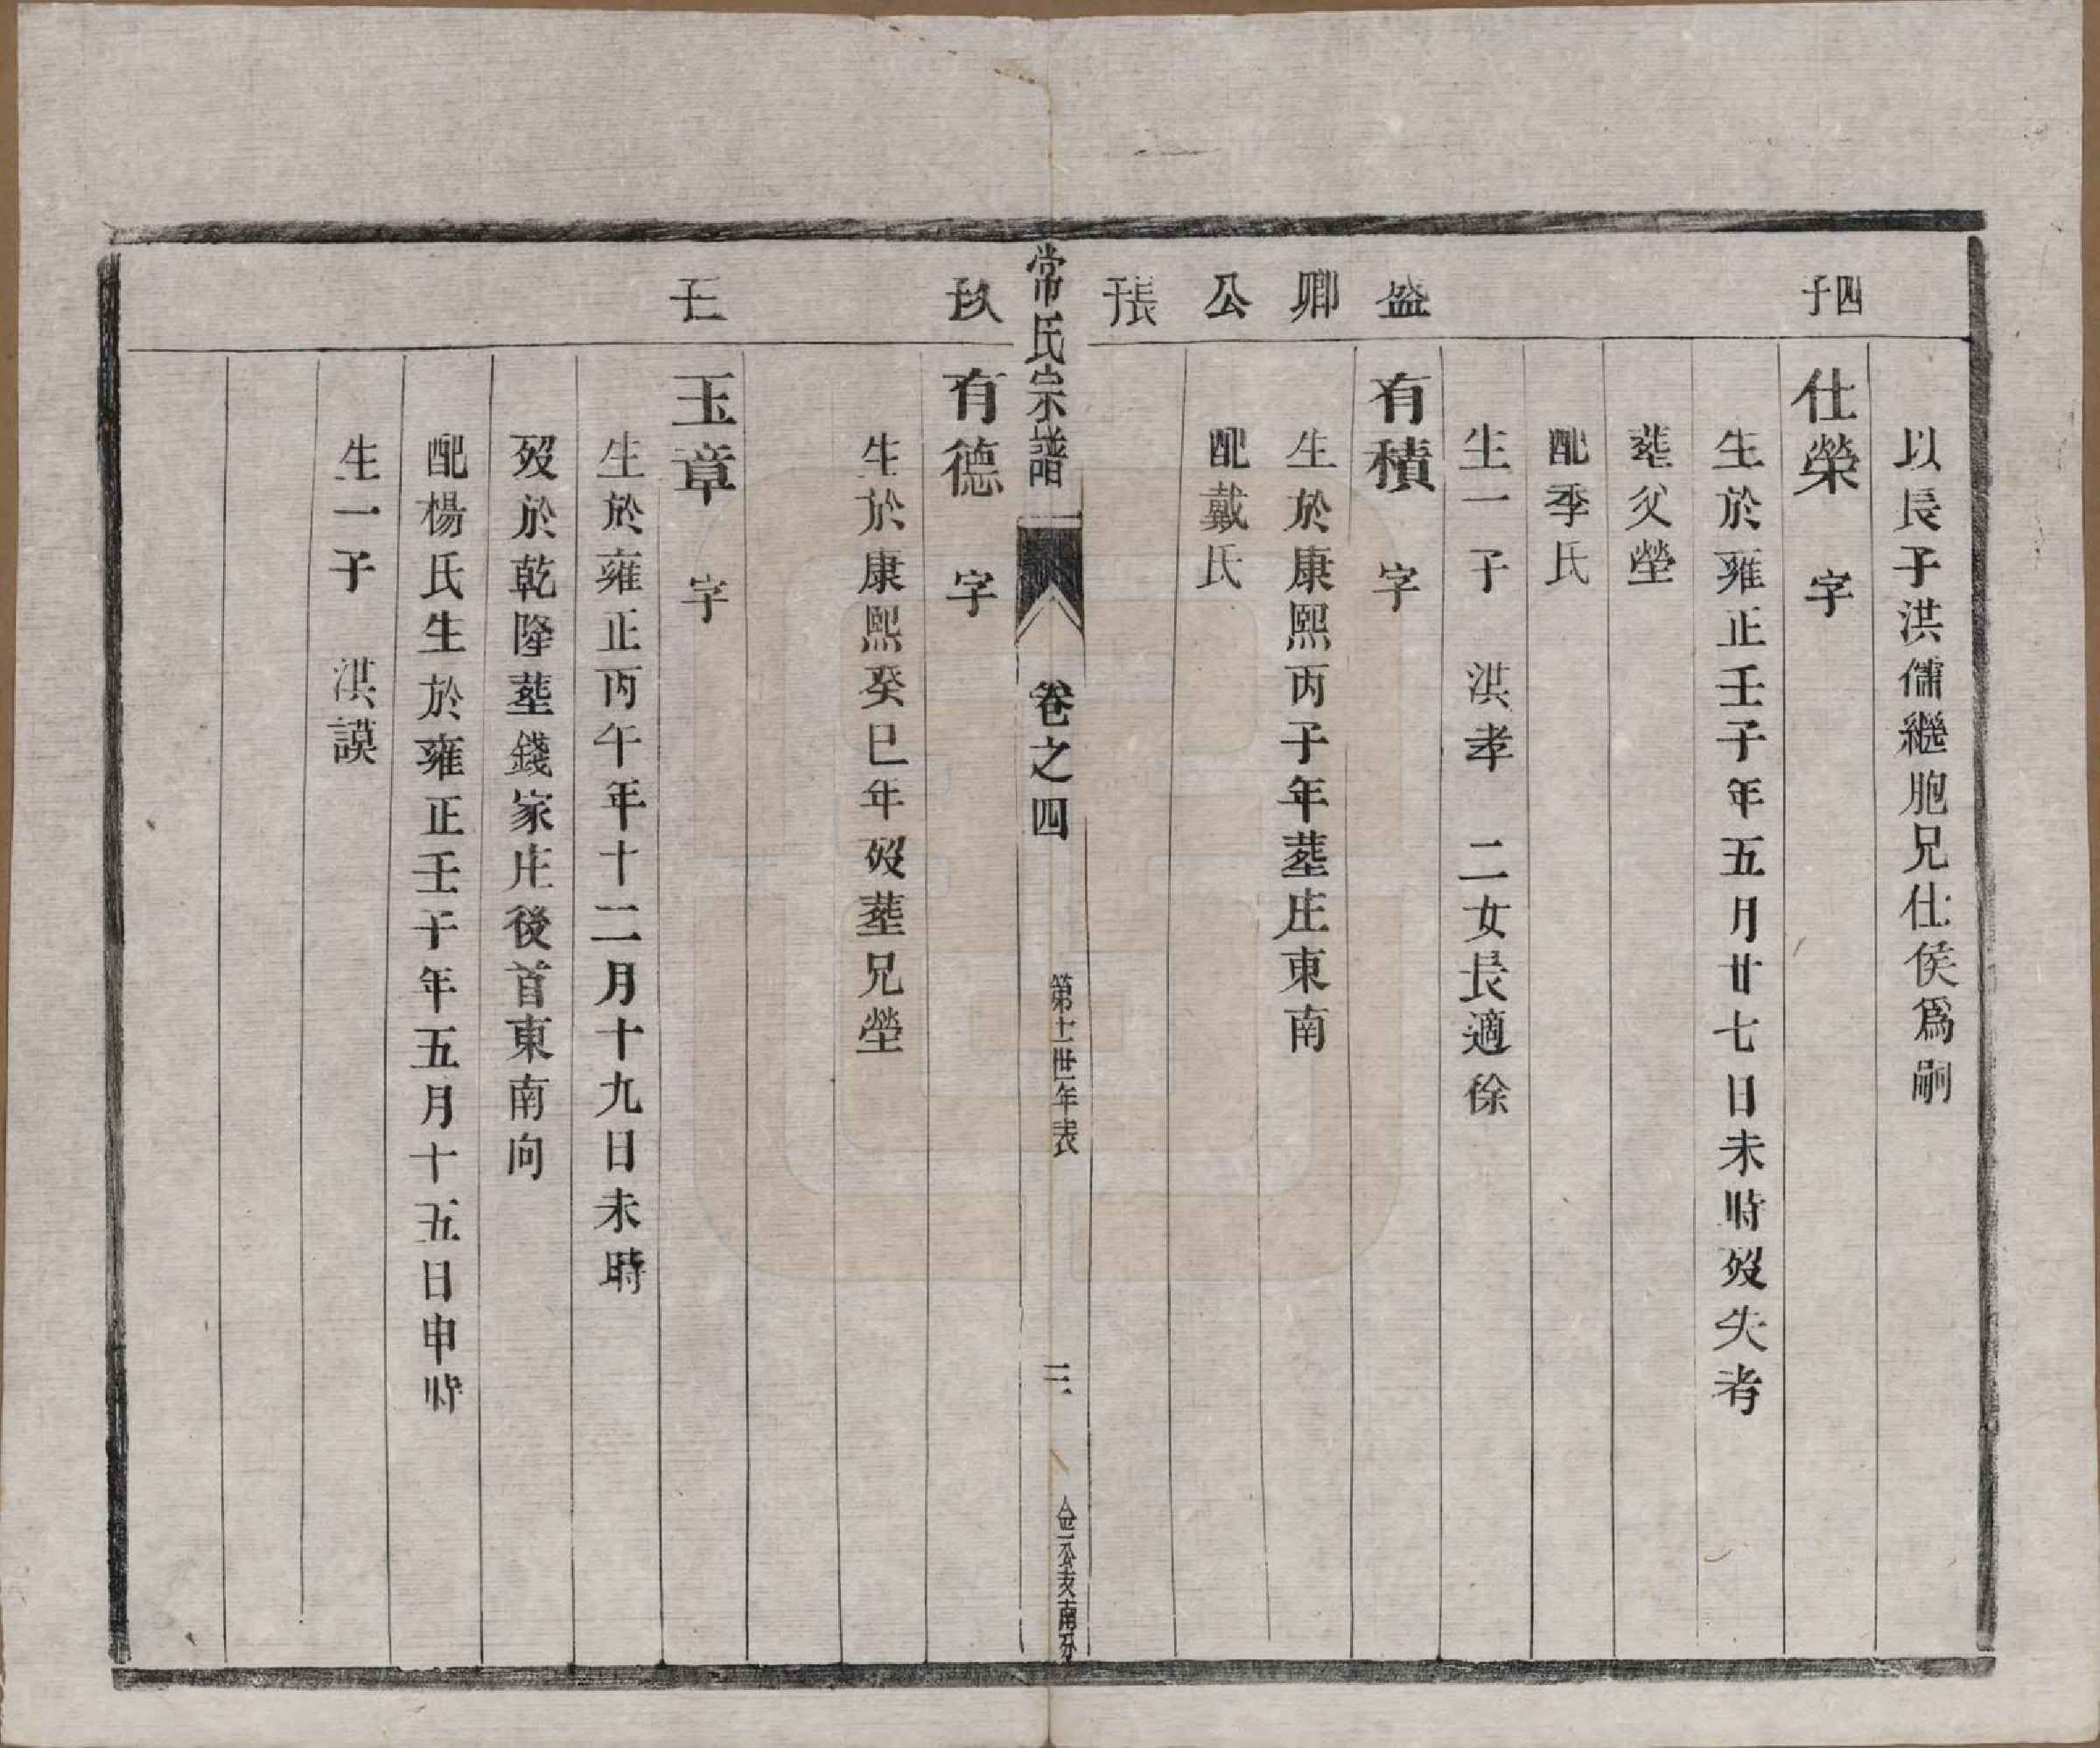 以長子洪儒繼胞兄仕侯爲嗣
四子
仕榮 字
生於雍正壬子年五月廿七日未時歿失考
塟父塋
配季氏
生一子 洪孝 二女長適徐
盛卿公長子
有積 字
生於康熙丙子年塟庄東南
配戴氏
常氏宗譜 卷之四 第十一世年表 三 金一公支南分
次子
有德 字
生於康熙癸巳年歿塟兄塋
三子
玉章 字
生於雍正丙午年十二月十九日未時
歿於乾隆塟錢家庄後首東南向
配楊氏生於雍正壬子年五月十五日申時
生一子 洪謨